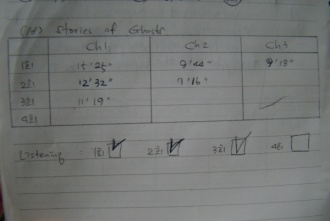 Stories of Ghosts
Ch1 Ch2 Ch3
1회 15'25" 9'44" 9'13"
2회 12'32" 7'16"
3회 11'19"
4회
Listening 1회 2회 3회 4회